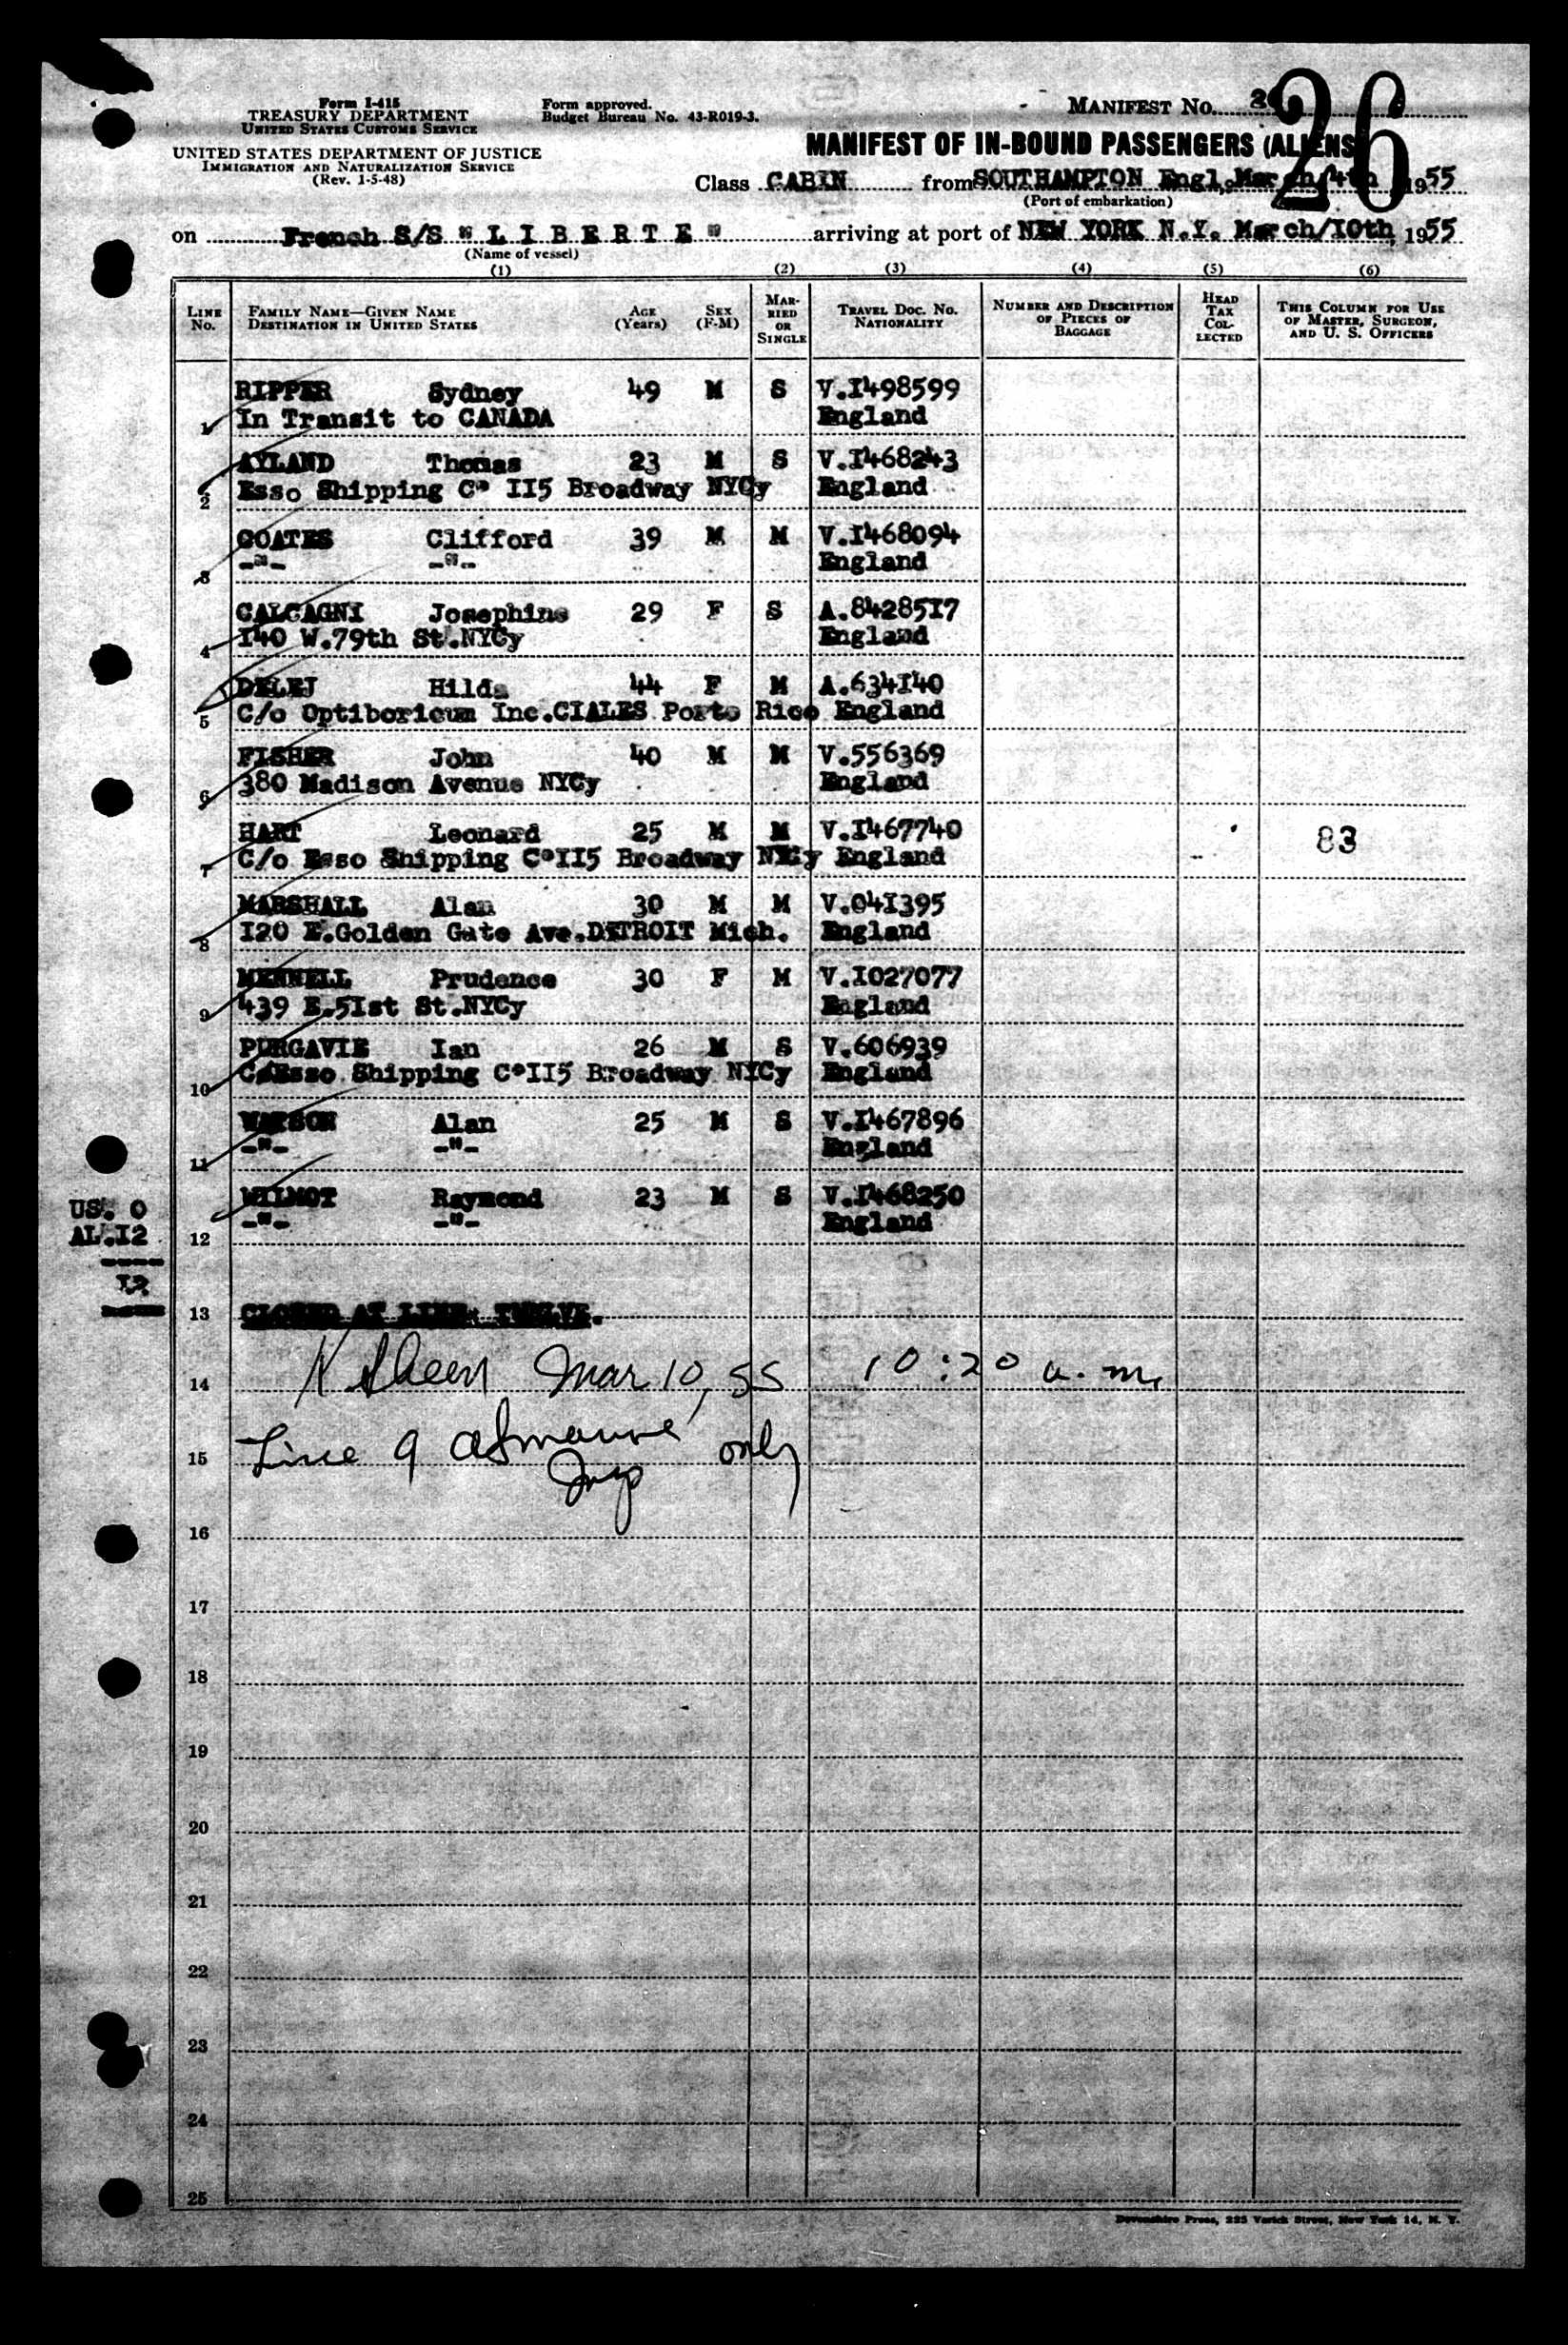 Form I-415
TREASURY DEPARTMENT
UNITED STATES CUSTOMS SERVICE
UNITED STATES DEPARTMENT OF JUSTICE
IMMIGRATION AND NATURALIZATION SERVICE
(Rev. 1-5-48)
Form approved.
Budget Bureau No. 43-R019-3.
MANIFEST No.
26
MANIFEST OF IN-BOUND PASSENGERS (ALIENS
Class CABIN from SOUTHAMPTON Engl, March/4th, 1955
(Port of embarkation)
on French S/S " L I B E R T E " arriving at port of NEW YORK N.Y. March/10th, 1955
(Name of vessel)
(1) (2) (3) (4) (5) (6)
LINE No. FAMILY NAME—GIVEN NAME DESTINATION IN UNITED STATES AGE (Years) SEX (F-M) MARRIED OR SINGLE TRAVEL DOC. NO. NATIONALITY NUMBER AND DESCRIPTION OF PIECES OF BAGGAGE HEAD TAX COLLECTED THIS COLUMN FOR USE OF MASTER, SURGEON, AND U. S. OFFICERS
RIPPER Sydney 49 M S V.I498599
1 In Transit to CANADA England
AYLAND Thomas 23 M S V.I468243
2 Esso Shipping C° II5 Broadway NYCy England
COATES Clifford 39 M M V.I468094
3 -"- -"- England
CALCAGNI Josephine 29 F S A.84285I7
4 I40 W.79th St.NYCy England
DELEJ Hilda 44 F M A.634I40
5 C/o Optiboricum Inc.CIALES Porto Rico England
FISHER John 40 M M V.556369
6 380 Madison Avenue NYCy England
HART Leonard 25 M M V.I467740
7 C/o Esso Shipping C°II5 Broadway NYCy England
83
MARSHALL Alan 30 M M V.04I395
8 I20 E.Golden Gate Ave.DETROIT Mich. England
MENNELL Prudence 30 F M V.I027077
9 439 E.5Ist St.NYCy England
PURGAVIE Ian 26 M S V.606939
10 C/Esso Shipping C°II5 Broadway NYCy England
WATSON Alan 25 M S V.I467896
11 -"- -"- England
WILMOT Raymond 23 M S V.I468250
12 -"- -"- England
US. 0
AL.I2
I2
13 CLOSED AT LINE: TWELVE.
14 Mar 10, 55 10:20 a.m.
15 Line 9 only
16
17
18
19
20
21
22
23
24
25
Devonshire Press, 225 Varick Street, New York 14, N. Y.